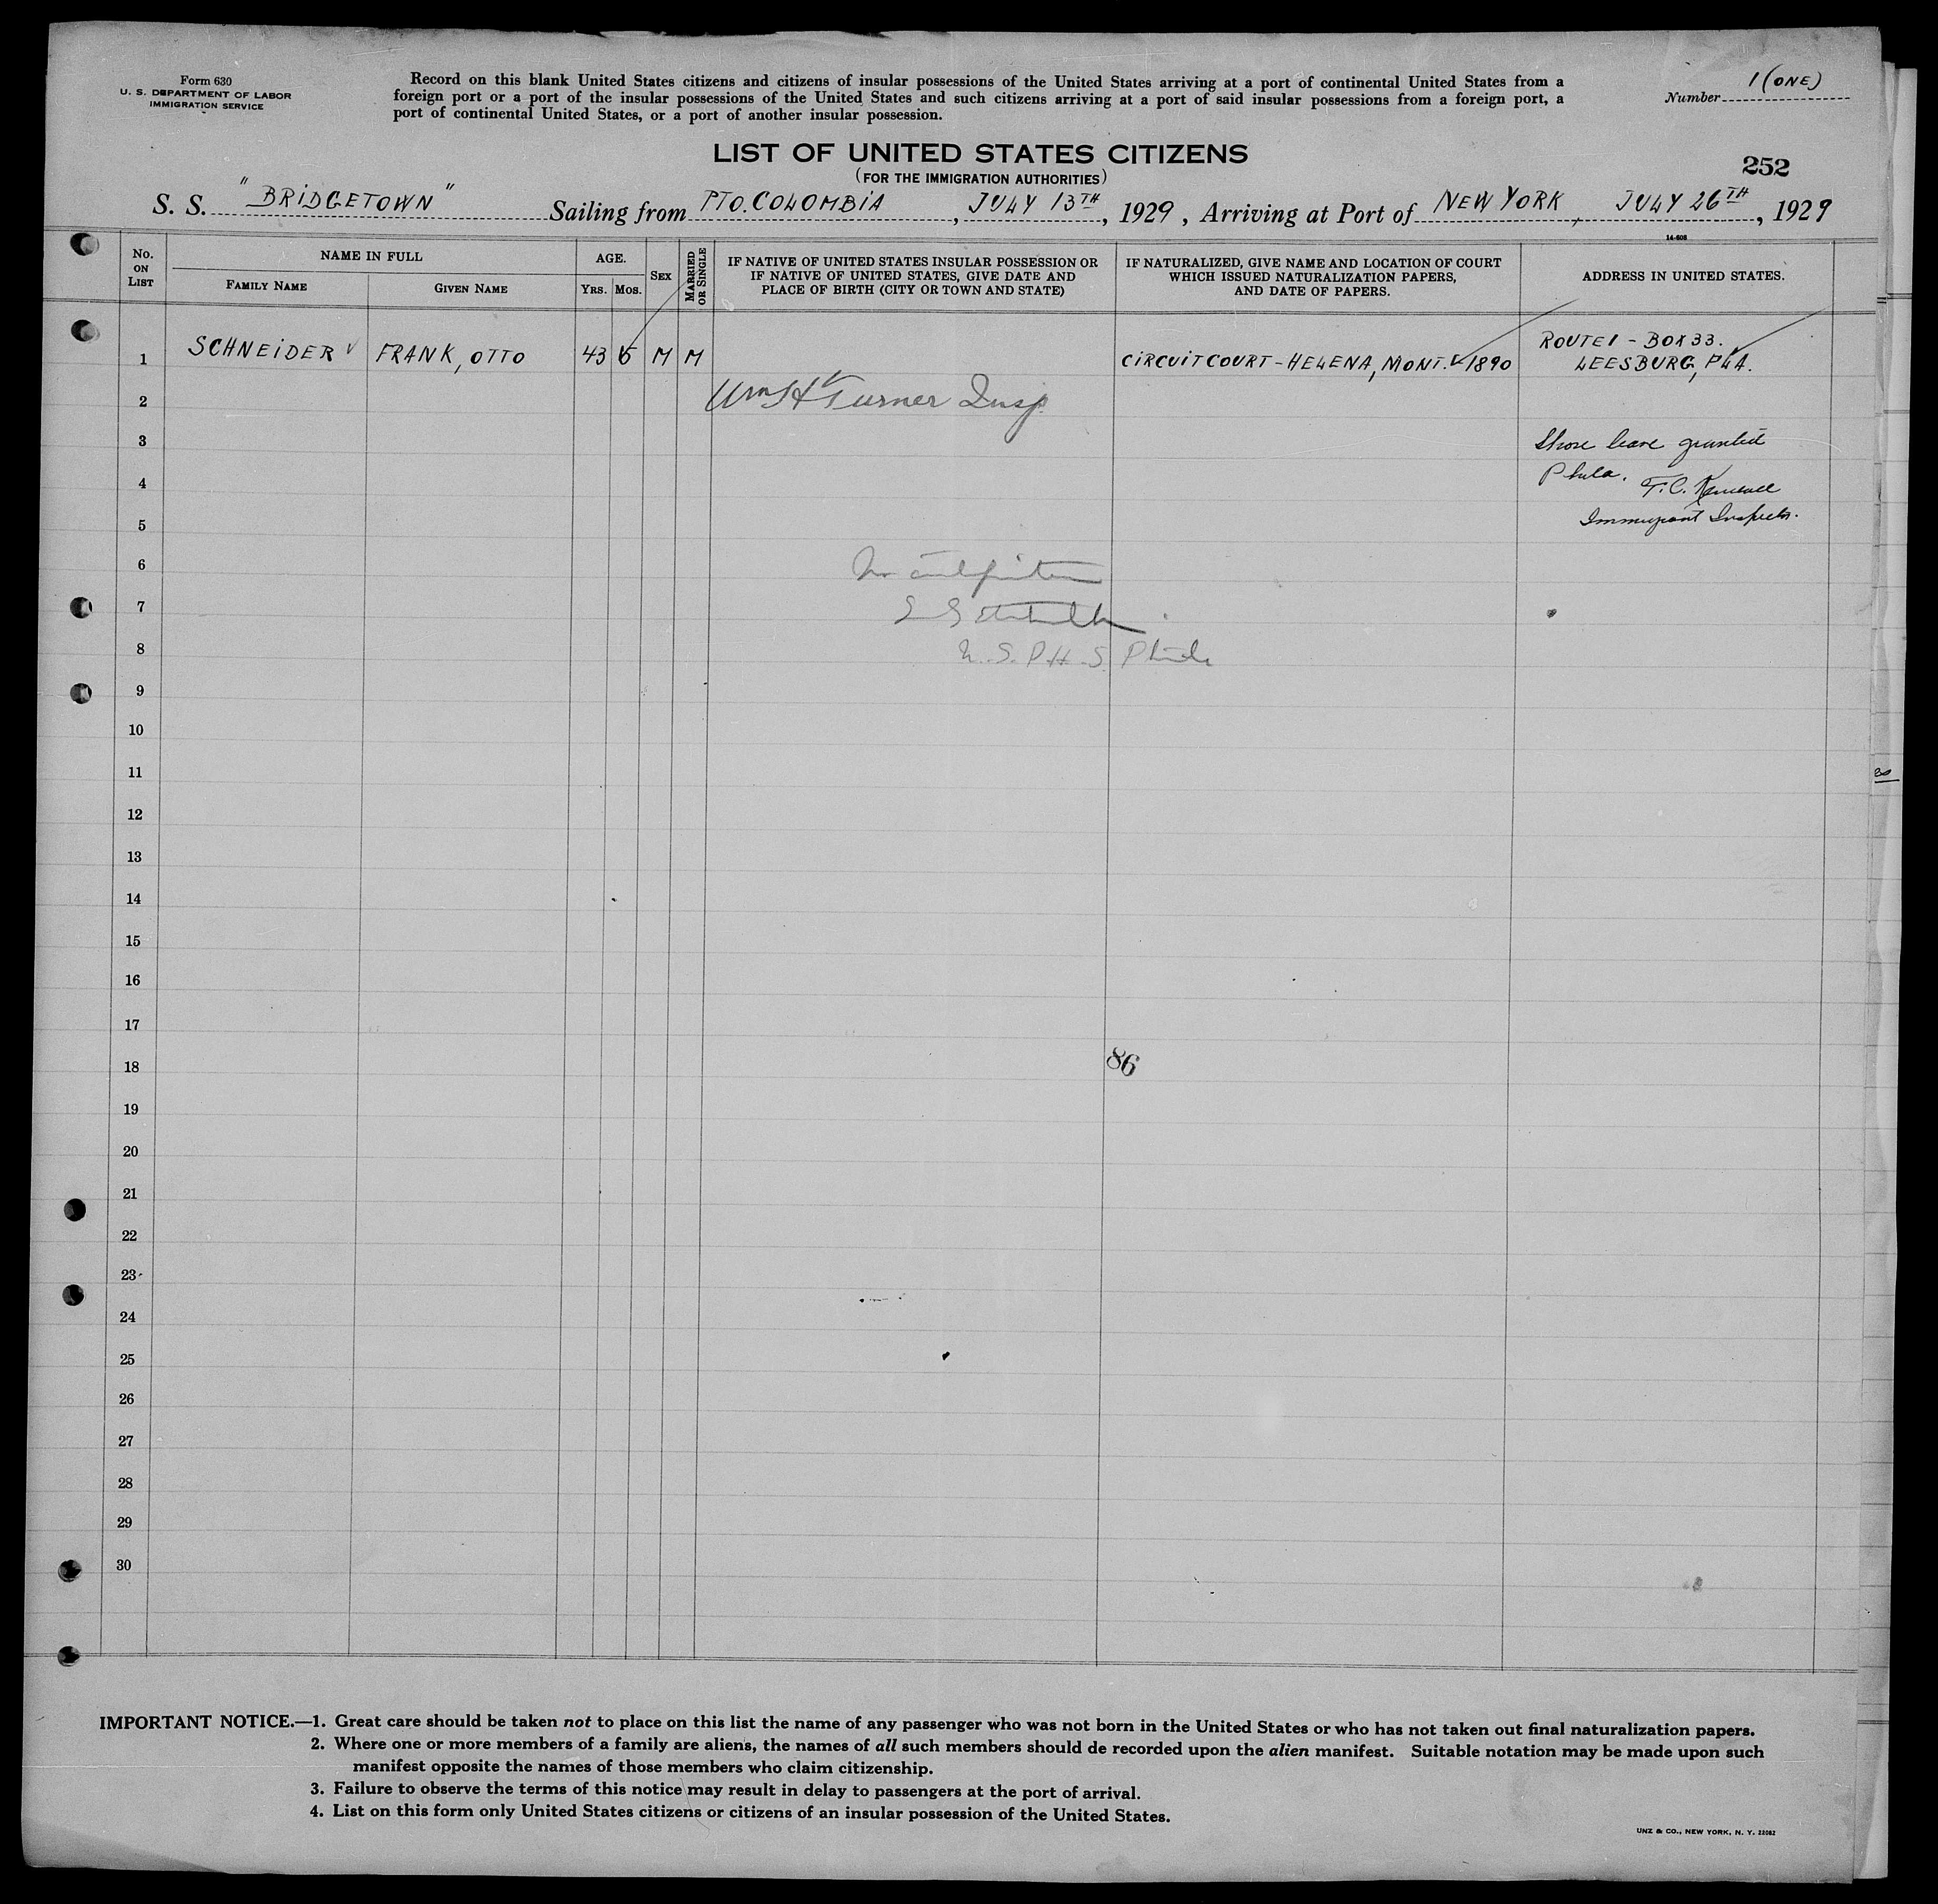 Form 630
U. S. DEPARTMENT OF LABOR
IMMIGRATION SERVICE
Record on this blank United States citizens and citizens of insular possessions of the United States arriving at a port of continental United States from a
foreign port or a port of the insular possessions of the United States and such citizens arriving at a port of said insular possessions from a foreign port, a
port of continental United States, or a port of another insular possession.
Number 1 (ONE)
LIST OF UNITED STATES CITIZENS
(FOR THE IMMIGRATION AUTHORITIES)
252
S. S. "BRIDGETOWN" Sailing from PTO. COLOMBIA, JULY 13TH, 1929, Arriving at Port of NEW YORK, JULY 26TH, 1929
14-608
No. ON LIST
NAME IN FULL
FAMILY NAME
GIVEN NAME
AGE.
YRS. MOS.
SEX
MARRIED OR SINGLE
IF NATIVE OF UNITED STATES INSULAR POSSESSION OR
IF NATIVE OF UNITED STATES, GIVE DATE AND
PLACE OF BIRTH (CITY OR TOWN AND STATE)
IF NATURALIZED, GIVE NAME AND LOCATION OF COURT
WHICH ISSUED NATURALIZATION PAPERS,
AND DATE OF PAPERS.
ADDRESS IN UNITED STATES.
1 SCHNEIDER FRANK, OTTO 43 5 M M CIRCUIT COURT - HELENA, MONT. 1890 ROUTE 1 - BOX 33.
LEESBURG, FLA.
2 Wm H Turner Insp
3 Shore leave granted
4 Phila. T. C.
5 Immigrant Inspector.
6
7
8 U. S. P. H. S. Phila
9
10
11
12
13
14
15
16
17
18 86
19
20
21
22
23
24
25
26
27
28
29
30
IMPORTANT NOTICE.—1. Great care should be taken not to place on this list the name of any passenger who was not born in the United States or who has not taken out final naturalization papers.
2. Where one or more members of a family are aliens, the names of all such members should de recorded upon the alien manifest. Suitable notation may be made upon such
manifest opposite the names of those members who claim citizenship.
3. Failure to observe the terms of this notice may result in delay to passengers at the port of arrival.
4. List on this form only United States citizens or citizens of an insular possession of the United States.
UNZ & CO., NEW YORK, N. Y. 22082